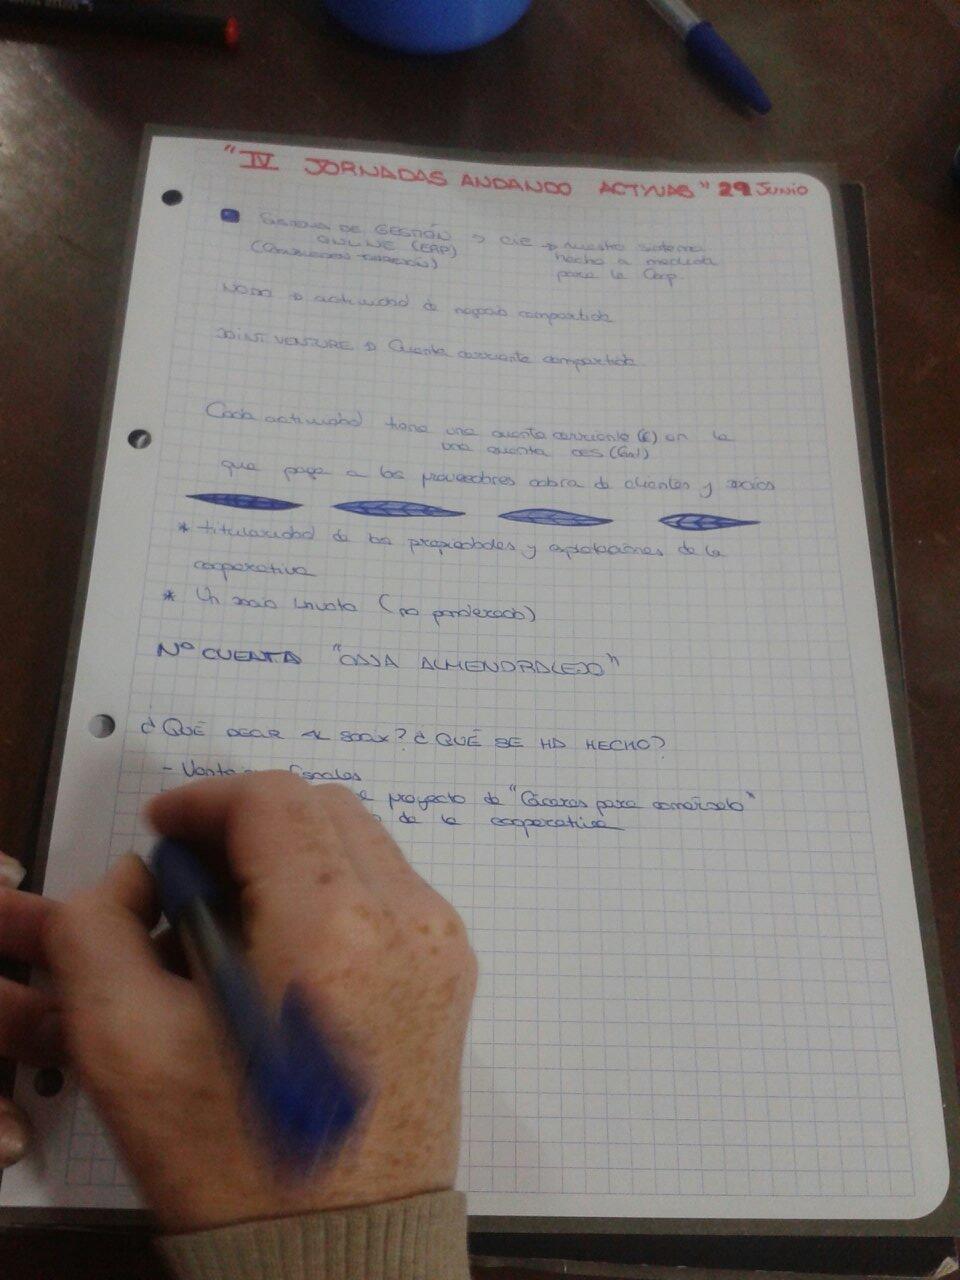 "IV JORNADAS ANDANDO ACTYVAS" 29 JUNIO
SISTEMA DE GESTIÓN → CIE → nuestro sistema
ONLINE (ERP) hecho a medida
para la Corp.
NODO → actividad de negocio compartida
JOINT VENTURE → Cuenta corriente compartida
Cada actividad tiene una cuenta corriente (€) en la
una cuenta ces
que paga a los proveedores cobra de clientes y socios
* titularidad de las propiedades y de la
cooperativa
* Un socio un voto (no ponderado)
Nº CUENTA "CAJA ALMENDRALEJO"
¿QUÉ ? ¿QUÉ SE HA HECHO?
- Ventajas fiscales
proyecto de "Cáceres para comérselo"
de la cooperativa